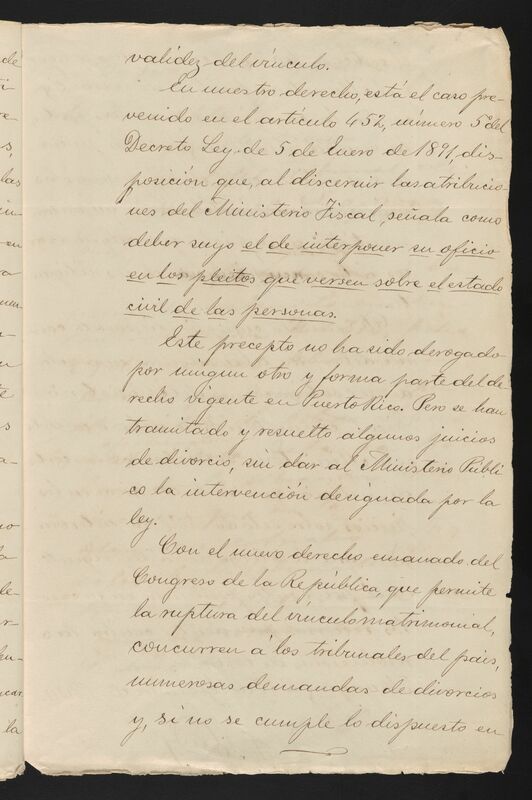 validez del vínculo.
En nuestro derecho, está el caso pre-
venido en el artículo 452, número 5º del
Decreto Ley de 5 de Enero de 1891, dis-
posición que, al discernir las atribucio-
nes del Ministerio Fiscal, señala como
deber suyo el de interponer su oficio
en los pleitos que versen sobre el estado
civil de las personas.
Este precepto no ha sido derogado
por ningun otro y forma parte del de
recho vigente en Puerto Rico. Pero se han
tramitado y resuelto algunos juicios
de divorcio, sin dar al Ministerio Públi
co la intervención designada por la
ley.
Con el nuevo derecho emanado del
Congreso de la República, que permite
la ruptura del vínculo matrimonial,
concurren á los tribunales del pais,
numerosas demandas de divorcios
y, si no se cumple lo dispuesto en